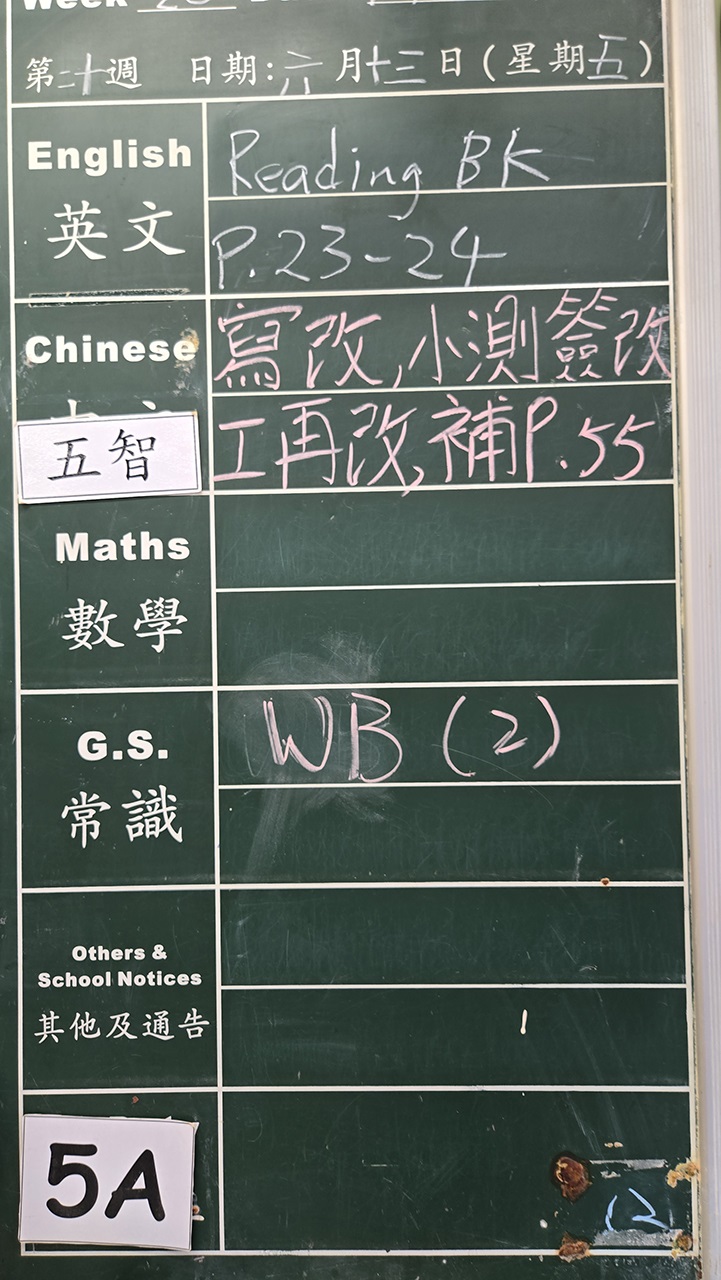 Week 20
第二十週 日期:六月十三日(星期五)
English
英文
Reading BK
P.23-24
Chinese
五智
寫改,小測簽改
工再改,補P.55
Maths
數學
G.S.
常識
WB (2)
Others &
School Notices
其他及通告
5A